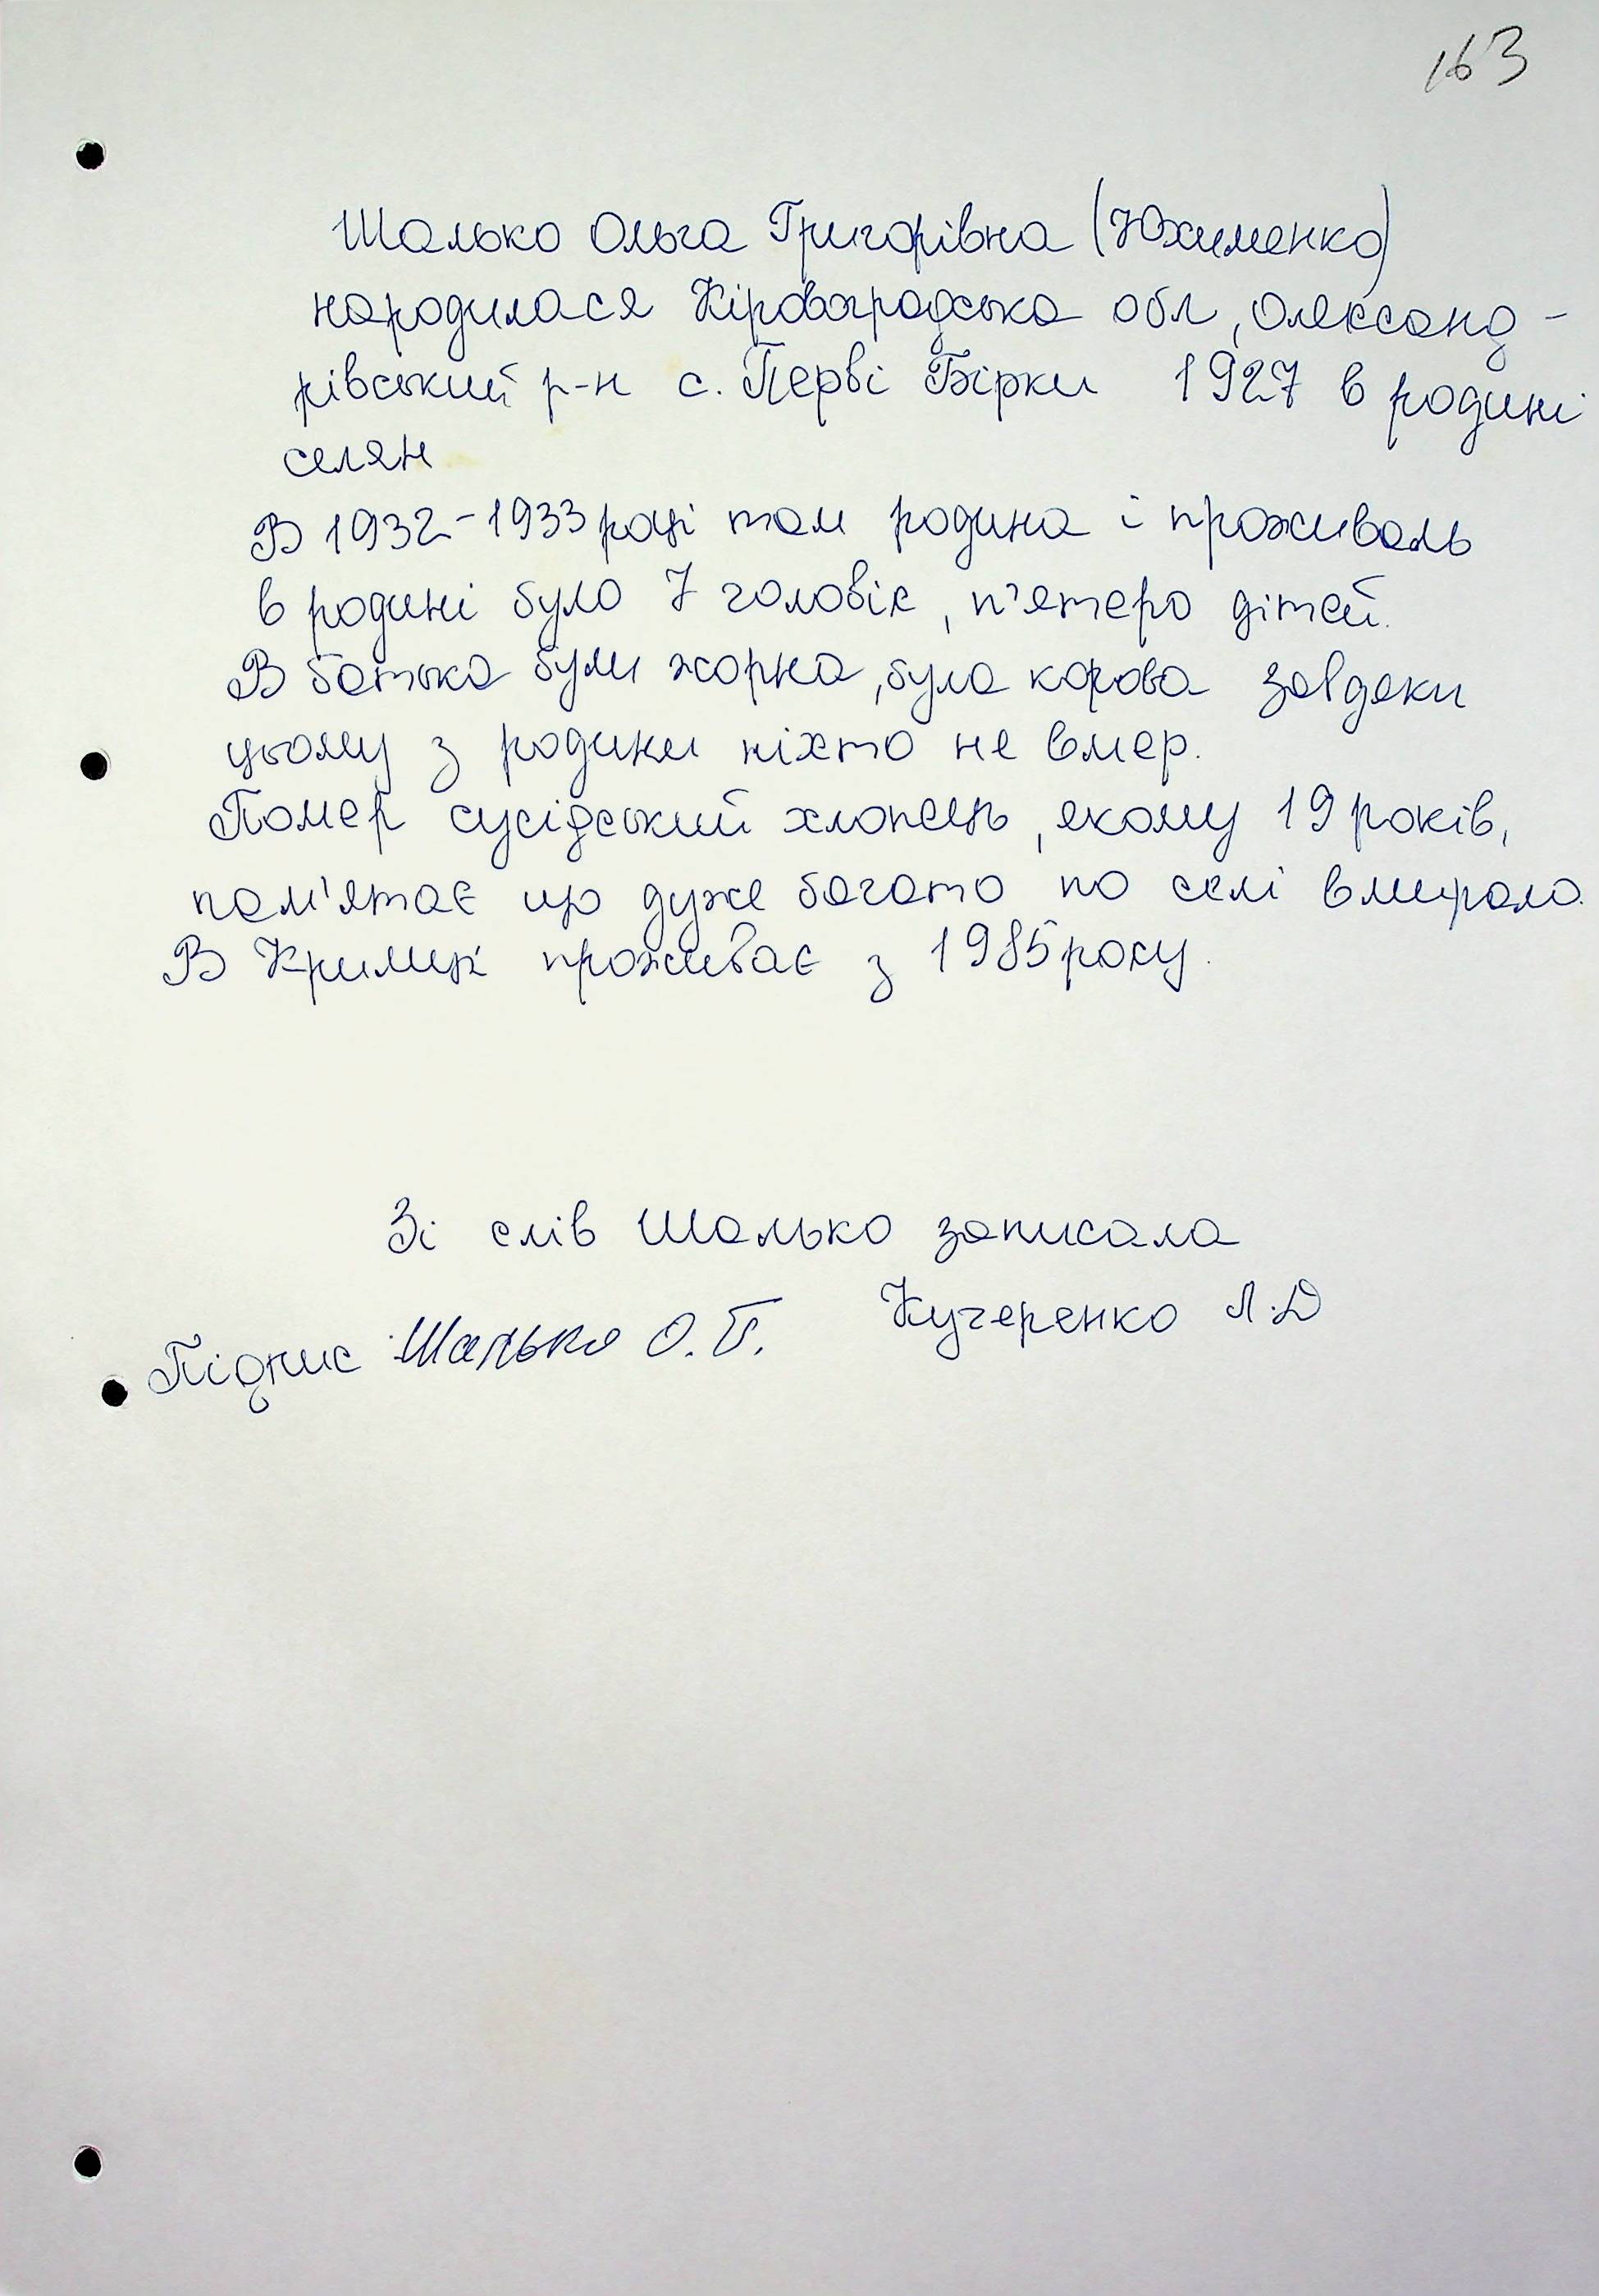 163
Шалько Ольга Григорівна (Юхименко)
народилася Кіровоградська обл, Олександ-
рівський р-н с. Перві Бірки 1927 в родині
селян
В 1932-1933 році там родина і проживаль
в родині було 7 чоловік, п'ятеро дітей.
В батька були жорна, була корова завдяки
цьому з родини ніхто не вмер.
Помер сусідський хлопець, якому 19 років,
пам'ятає що дуже багато по селі вмирало.
В Криму проживає з 1985 року.
Зі слів Шалько записала
Кучеренко Л.Д
Підпис Шалько О.Г.